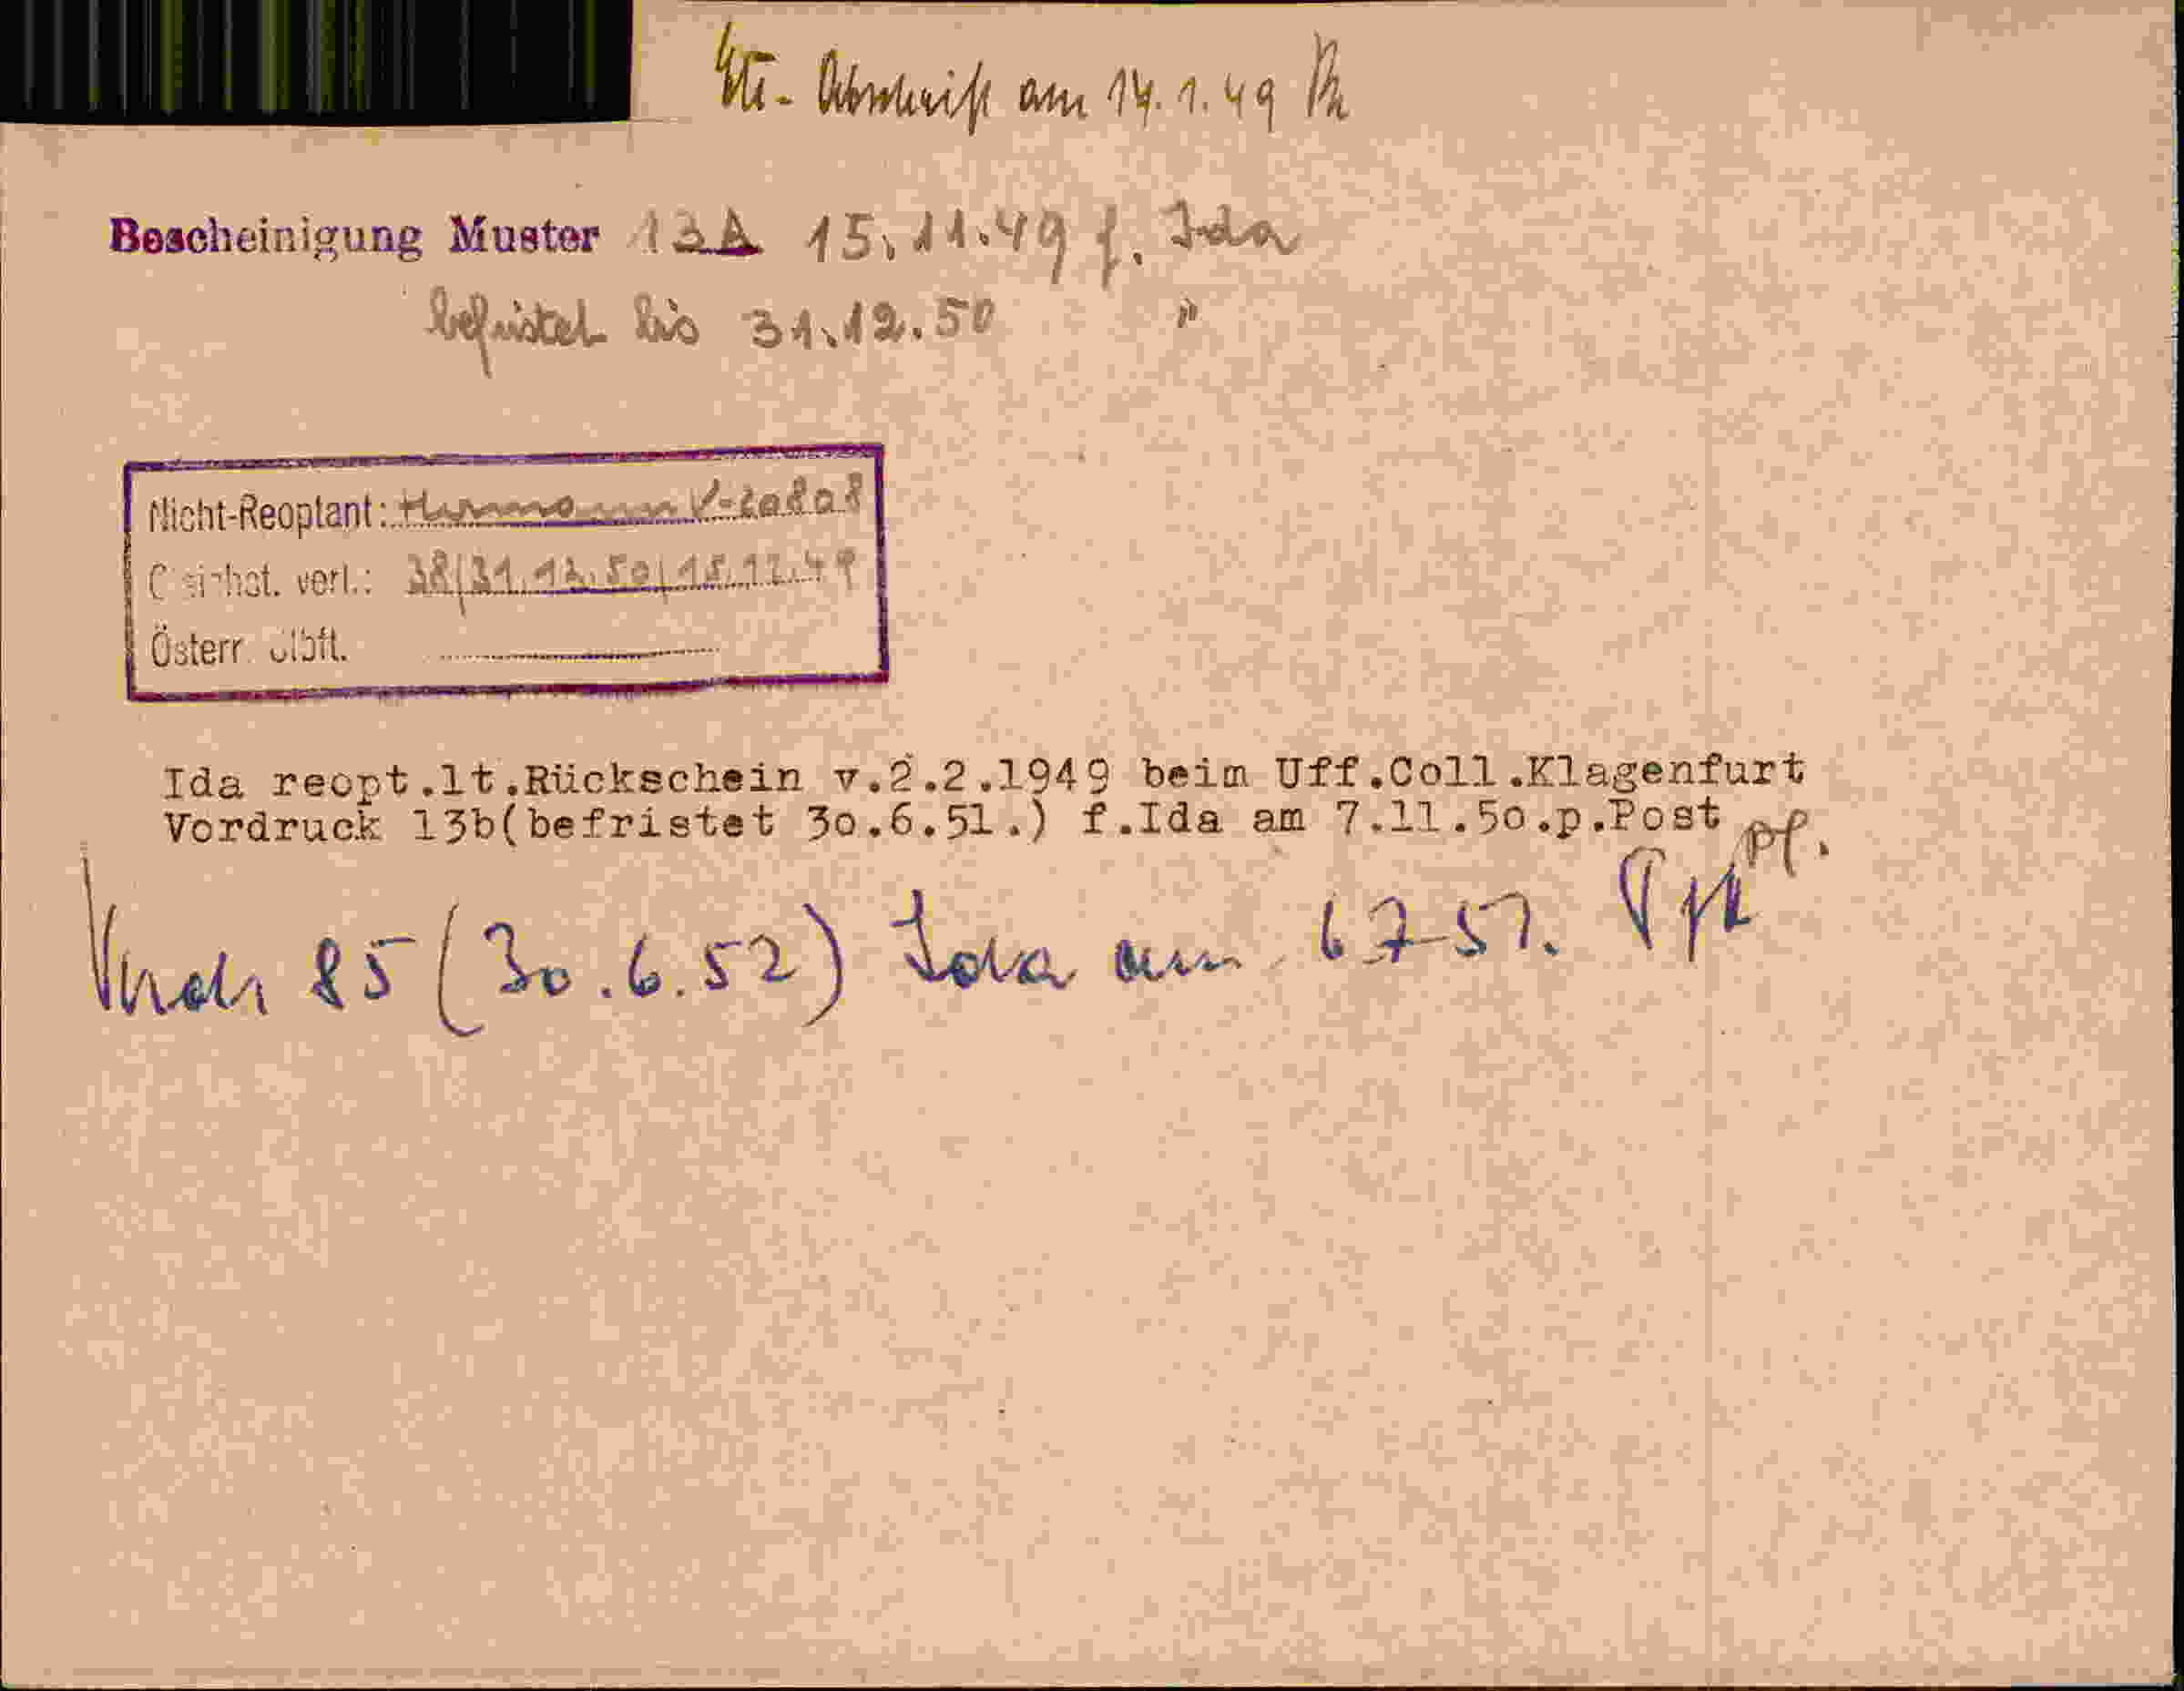 Abschrift am 14.1.49
Bescheinigung Muster 13A 15.11.49 f. Ida
befristet bis 31.12.50 "
Nicht-Reoptant: Hermann V-20808
verl.: 38/31.12.50/15.12.49
Österr.
Ida reopt.lt.Rückschein v.2.2.1949 beim Uff.Coll.Klagenfurt
Vordruck 13b(befristet 3o.6.51.) f.Ida am 7.11.5o.p.Post
85 (30.6.52) Ida am 6.7.51.